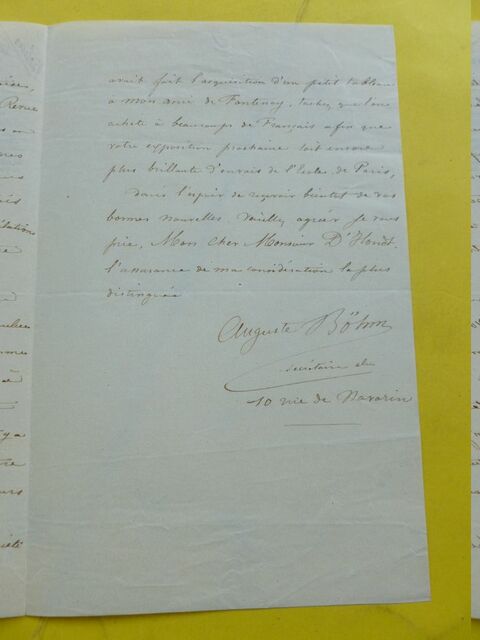 avait fait l'acquisition d'un petit tableau
a mon ami de Fontenay, tachez que l'on
achete à beaucoup de Français afin que
votre exposition prochaine soit encore
plus brillante d'envois de l'Ecole de Paris,
dans l'espoir de recevoir bientot de vos
bonnes nouvelles, Veuillez agréer je vous
prie, Mon Cher Monsieur D'Hondt,
l'assurance de ma considération la plus
distinguée
Auguste Böhm
secrétaire
10 rue de Navarin
aise,
Revue